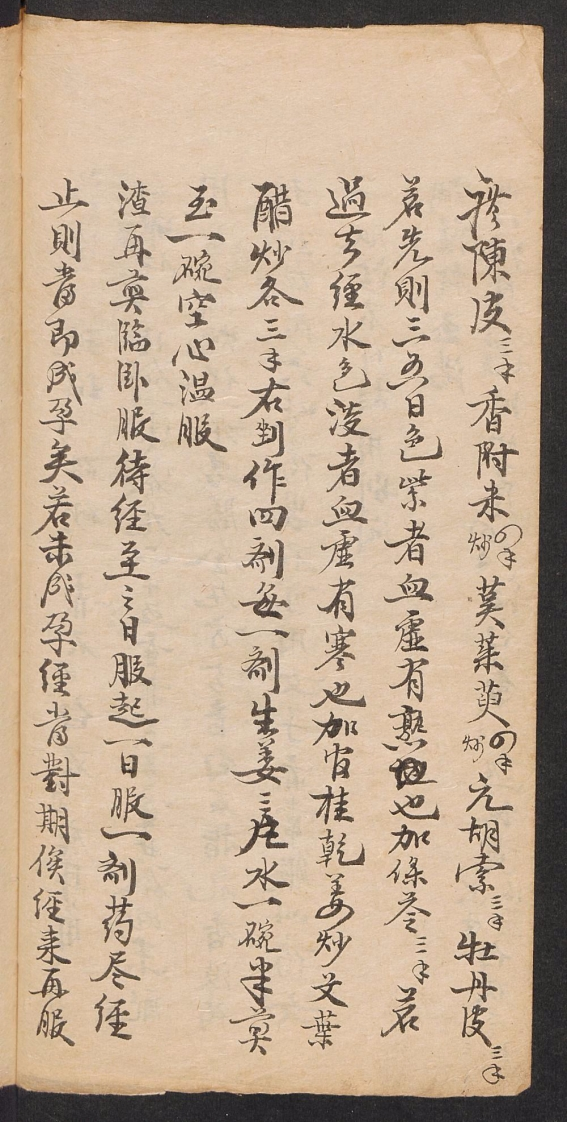 陳皮三钱香附米炒四钱茱萸炒四钱元胡索三钱牡丹皮三钱
若先則三五日色紫者血虛有熱也加條芩三钱若
過去經水色淡者血虛有寒也加官桂乾姜炒艾葉
醋炒各三钱右剉作四劑每一劑生姜三片水一碗半煎
至一碗空心温服
渣再煎臨卧服待經至之日服起一日服一劑药尽經
止則當即成孕矣若未成孕經當對期俟經来再服